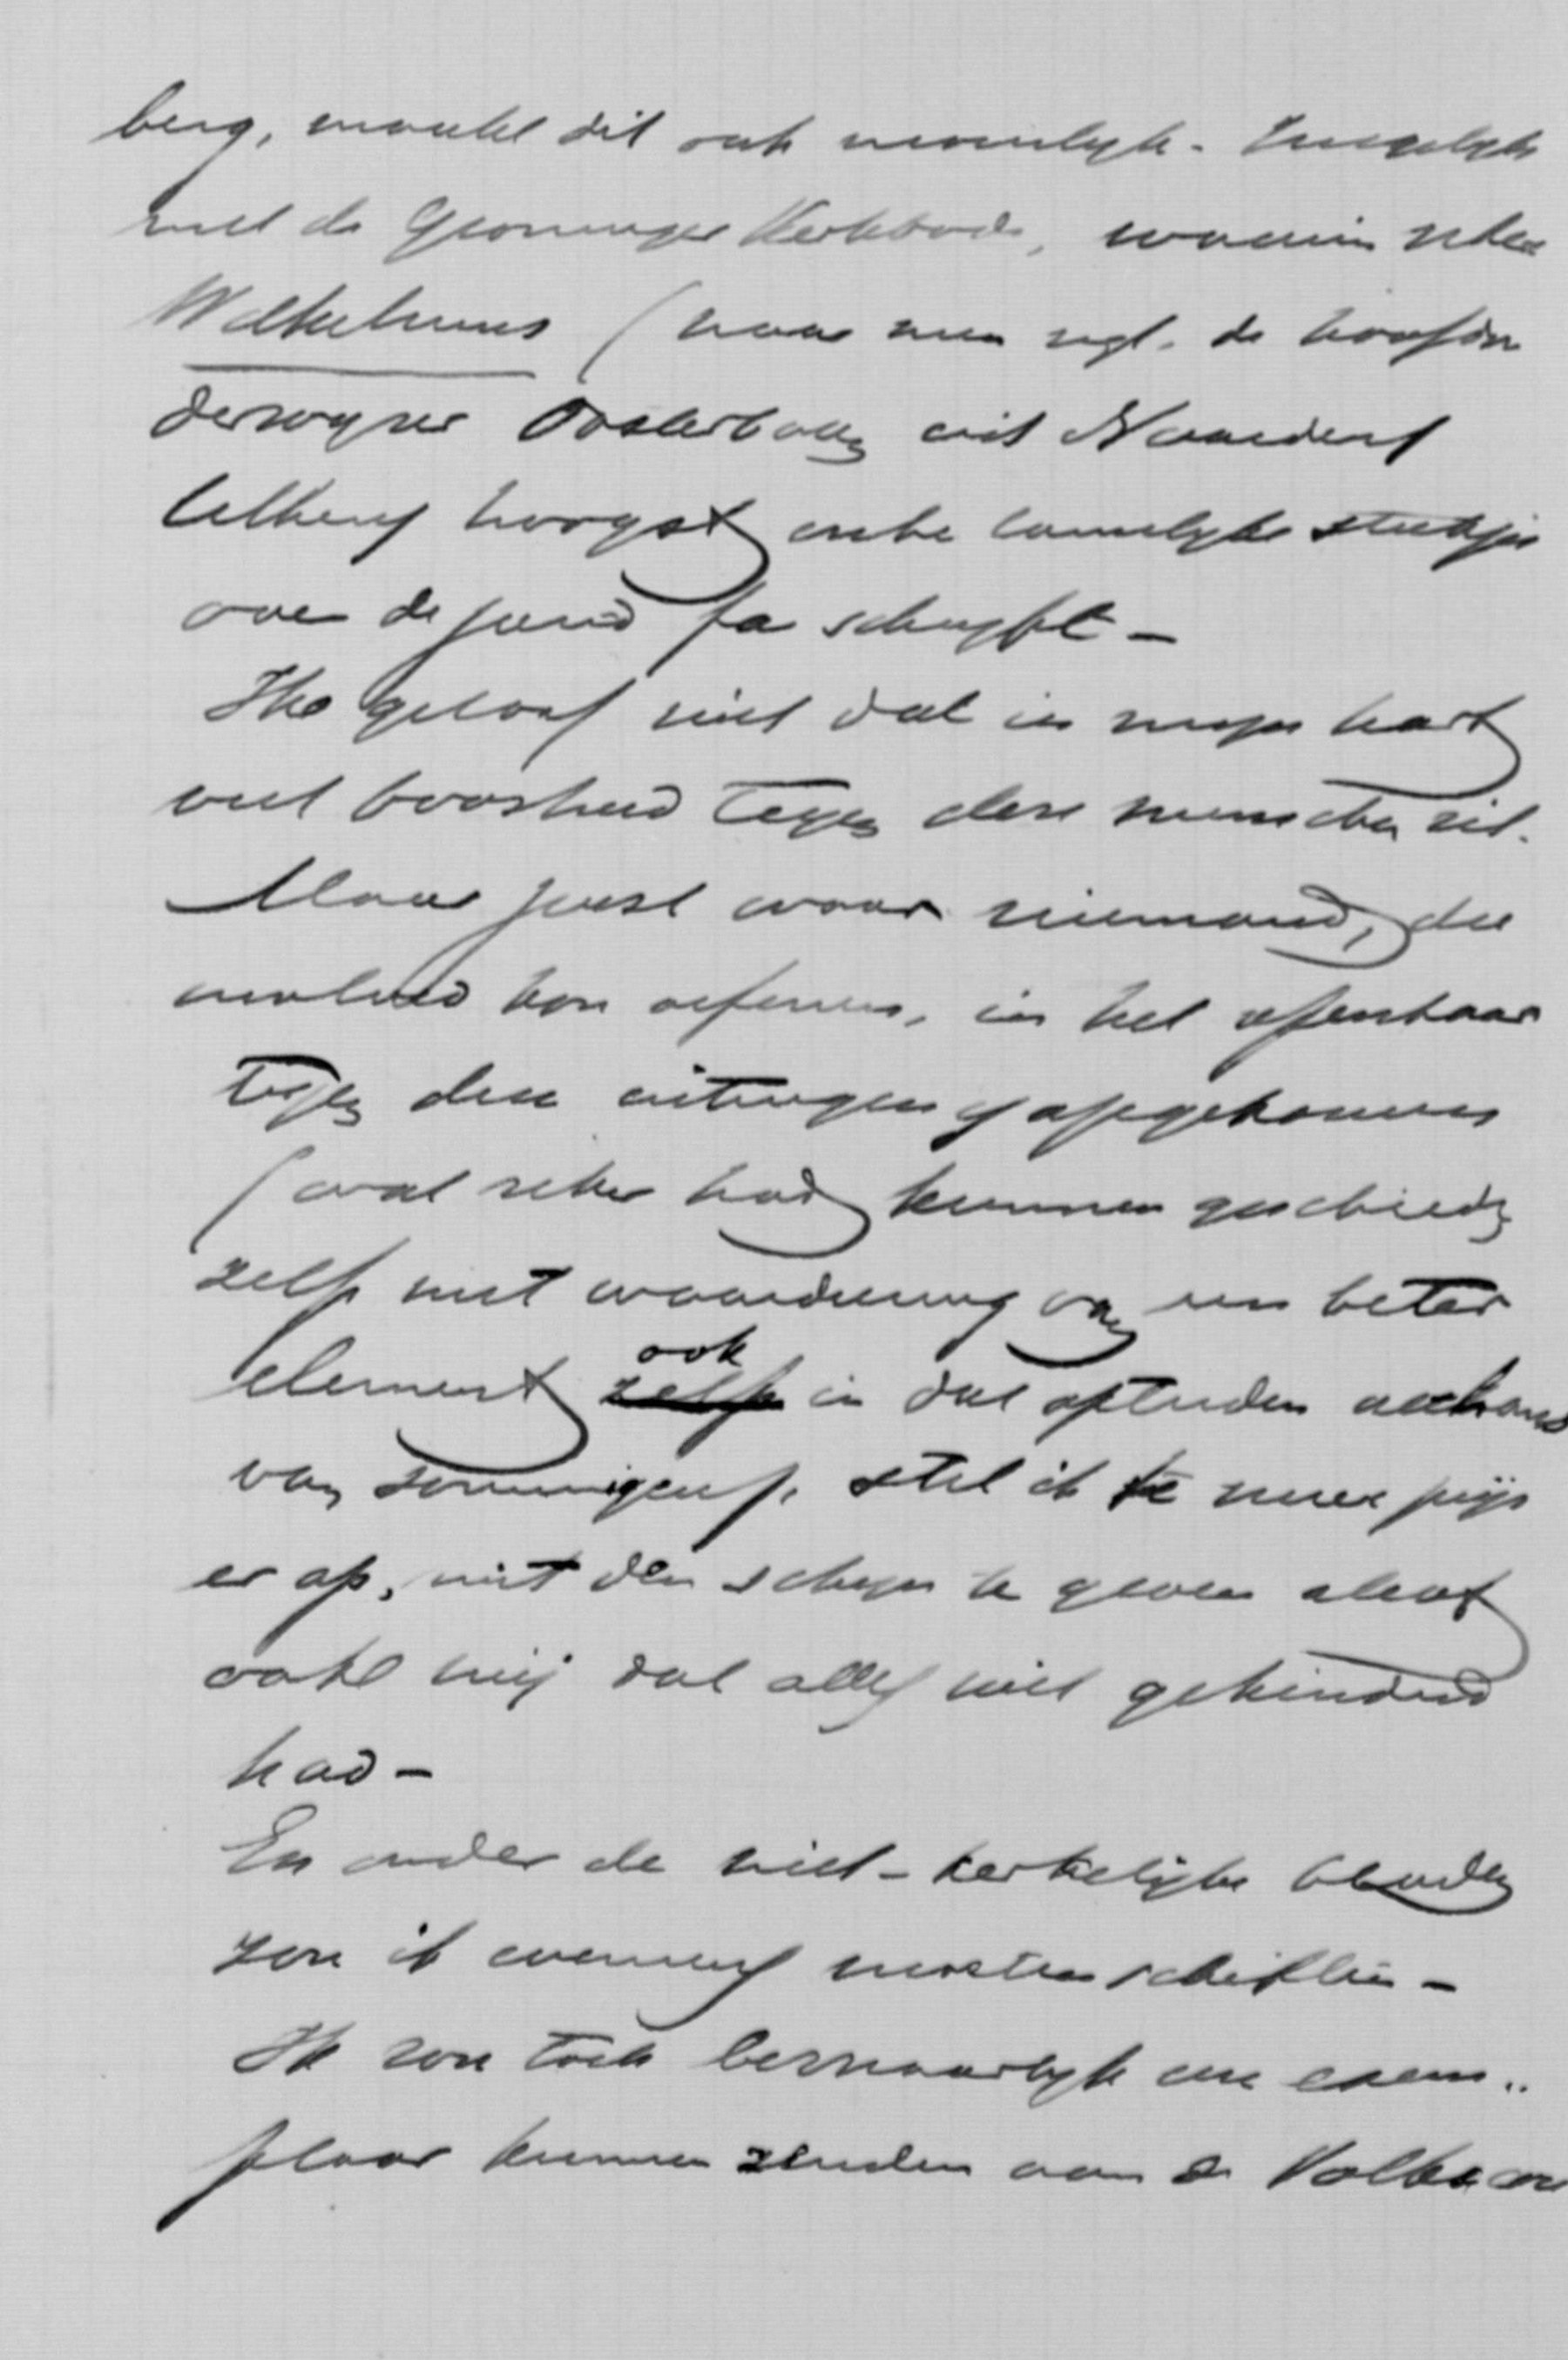 berg, maakt dit ook moeilijk. Insgelijks
met de Groninger Kerkbode, waarin zeker
Wilhelmus (naar men zegt, de hoofdon
derwijzer Oosterbaan uit Naarden)
telkens hoogst onbetamelijke stukjes
over de jeud fa schrijft –
Ik geloof niet dat in mijn hart
veel boosheid tegen deze menschen zit.
Maar juist waar niemand, die
invloed kon oefenen, in het openbaar
tegen deze uitingen is opgekomen
(wat zeker had kunnen geschieden
zelfs met waardeering van een beter
element ook zelfs in dat optreden althans
van sommigen), stel ik te meer prijs
er op, niet den schijn te geven alsof
ook mij dat alles niet gehinderd
had –
En onder de niet-kerkelijke bladen
zou ik eveneens moeten schiften –
Ik zou toch bezwaarlijk een exem..
plaar kunnen zenden aan de Volks